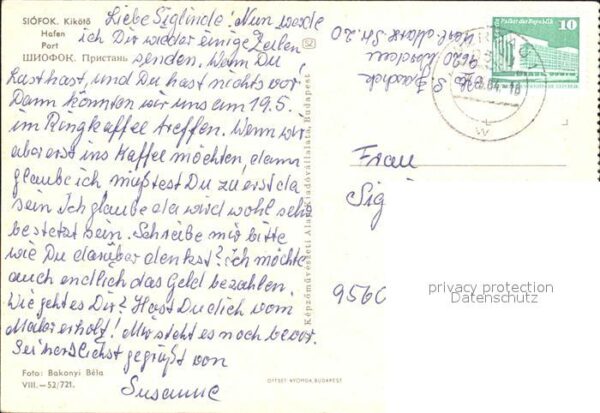 SIÓFOK. Kikötő
Hafen
Port
ШИОФОК. Пристань
Liebe Siglinde! Nun werde
ich Dir wieder einige Zeilen
senden. Wenn Du
Lust hast, und Du hast nichts vor.
Dann könnten wir uns am 19.5.
im Ringkaffee treffen. Wenn wir
aber erst ins Kaffee möchten, dann
glaube ich müßtest Du zu erst da
sein. Ich glaube da wird wohl sehr
besetzt sein. Schreibe mir bitte
wie Du darüber denkst? Ich möchte
auch endlich das Geld bezahlen.
Wie geht es Dir? Hast Du dich vom
Maler erholt! Mir steht es noch bevor.
Sei herzlichst gegrüßt von
Susanne
Foto: Bakonyi Béla
VIII.—52/721.
Képzőművészeti Alap Kiadóvállalata, Budapest
OFFSET NYOMDA BUDAPEST
Karl-Marx Str. 20
9620 Werdau
Palast der Republik
10
84-18
Frau
Sig
9560
privacy protection
Datenschutz